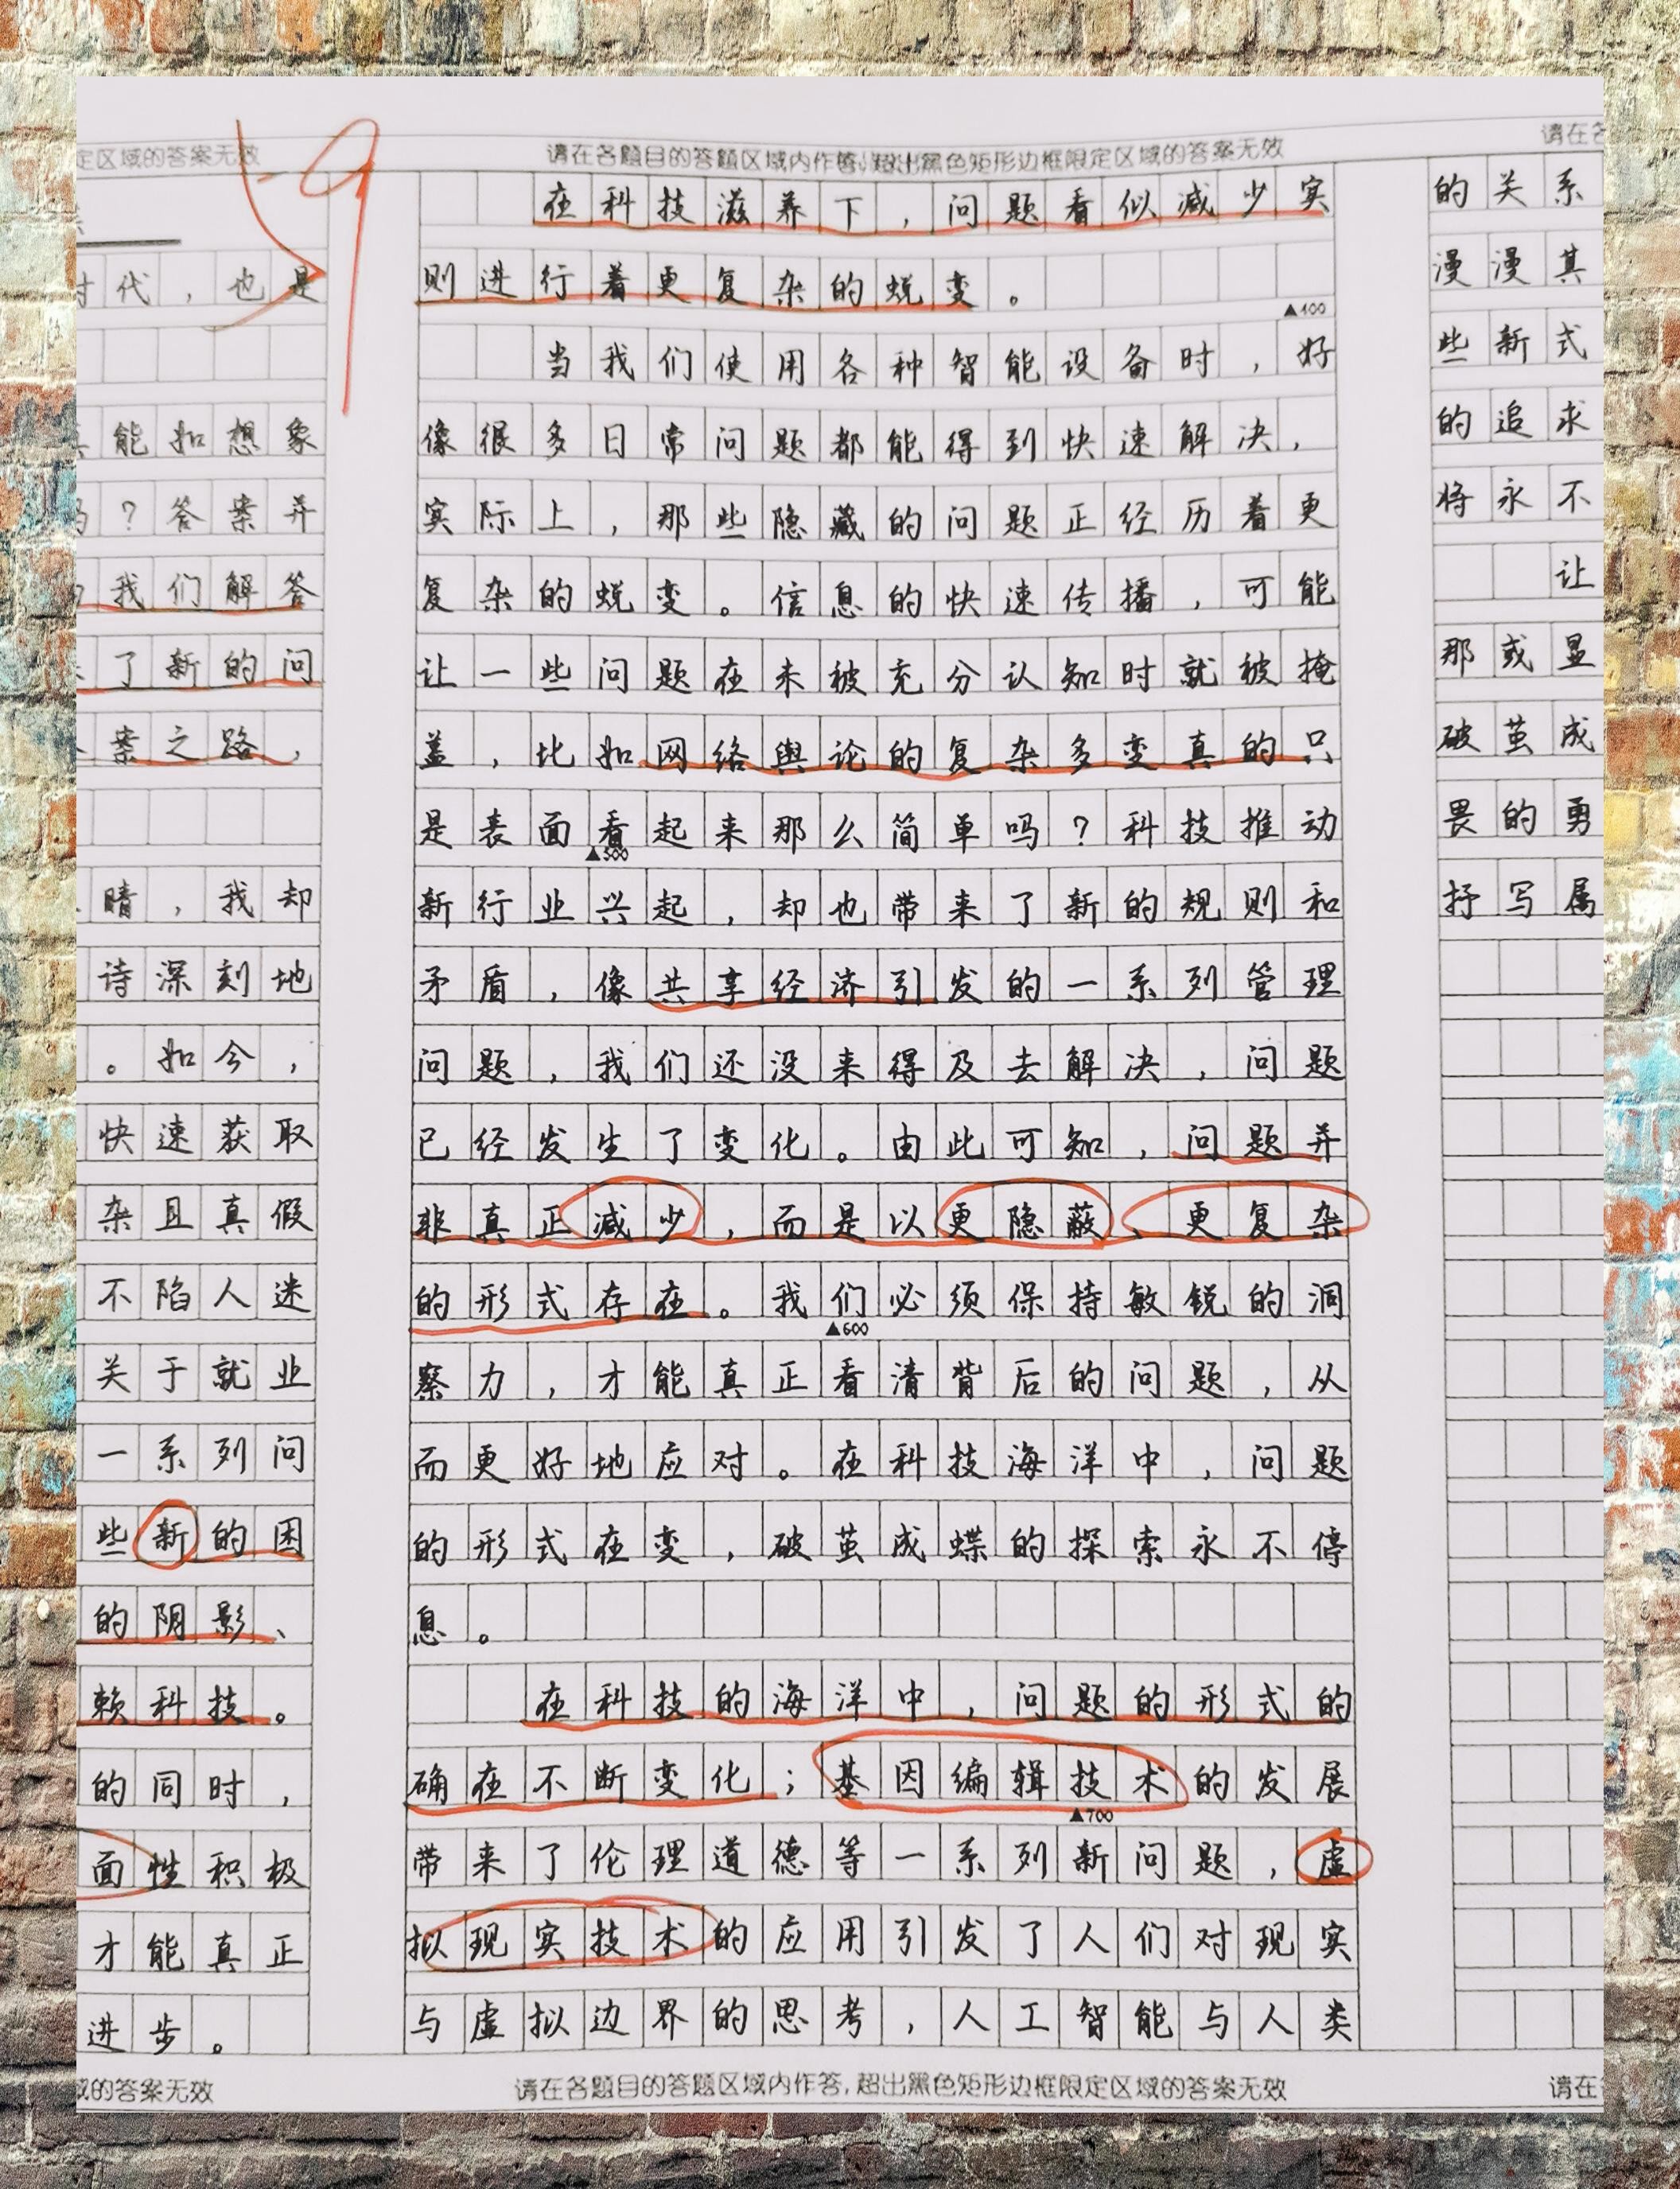 定区域的答案无效
时代，也是
能如想象
？答案并
我们解答
了新的问
案之路，
晴，我却
诗深刻地
。如今，
快速获取
杂且真假
不陷人迷
关于就业
一系列问
些新的困
的阴影、
赖科技。
的同时，
面性积极
才能真正
进步。
域的答案无效
59
请在各题目的答题区域内作答，超出黑色矩形边框限定区域的答案无效
在科技滋养下，问题看似减少实
则进行着更复杂的蜕变。
▲400
当我们使用各种智能设备时，好
像很多日常问题都能得到快速解决，
实际上，那些隐藏的问题正经历着更
复杂的蜕变。信息的快速传播，可能
让一些问题在未被充分认知时就被掩
盖，比如网络舆论的复杂多变真的只
是表面看起来那么简单吗？科技推动
▲500
新行业兴起，却也带来了新的规则和
矛盾，像共享经济引发的一系列管理
问题，我们还没来得及去解决，问题
已经发生了变化。由此可知，问题并
非真正减少，而是以更隐蔽、更复杂
的形式存在。我们必须保持敏锐的洞
▲600
察力，才能真正看清背后的问题，从
而更好地应对。在科技海洋中，问题
的形式在变，破茧成蝶的探索永不停
息。
在科技的海洋中，问题的形式的
确在不断变化；基因编辑技术的发展
▲700
带来了伦理道德等一系列新问题，虚
拟现实技术的应用引发了人们对现实
与虚拟边界的思考，人工智能与人类
请在各题目的答题区域内作答，超出黑色矩形边框限定区域的答案无效
请在各
的关系
漫漫其
些新式
的追求
将永不
让
那或显
破茧成
畏的勇
抒写属
请在